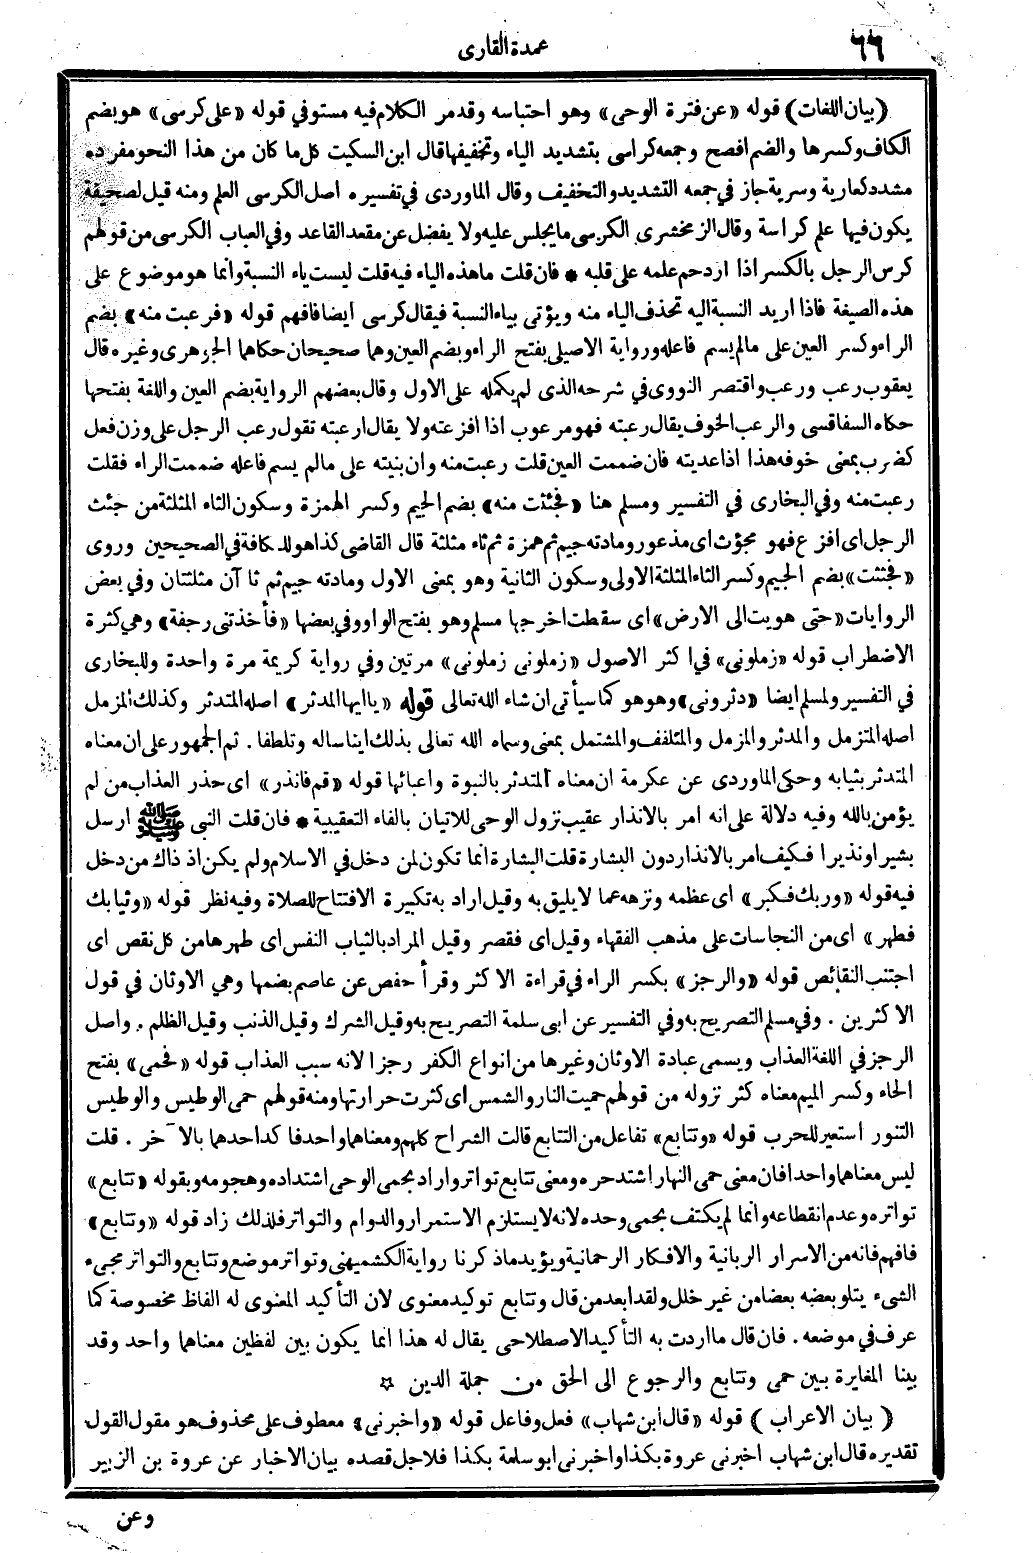 ٦٦
عمدة القارى
(بيان اللغات) قوله «عن فترة الوحى» وهو احتباسه وقد مر الكلام فيه مستوفي قوله «على كرسى» هو بضم
الكاف وكسرها والضم افصح وجمعه كراسى بتشديد الياء وتخفيفها قال ابن السكيت كل ما كان من هذا النحو مفرده
مشدد كعارية وسرية جاز في جمعه التشديد والتخفيف وقال الماوردى في تفسيره اصل الكرسى العلم ومنه قيل لصحيفة
يكون فيها علم كراسة وقال الزمخشرى الكرسى ما يجلس عليه ولا يفضل عن مقعد القاعد وفي العباب الكرسى من قولهم
كرس الرجل بالكسر اذا ازدحم علمه على قلبه * فان قلت ما هذه الياء فيه قلت ليست ياء النسبة وانما هو موضوع على
هذه الصيغة فاذا اريد النسبة اليه تحذف الياء منه ويؤتى بياء النسبة فيقال كرسى ايضا فافهم قوله «فرعبت منه» بضم
الراء وكسر العين على مالم يسم فاعله ورواية الاصيلى بفتح الراء وبضم العين وهما صحيحان حكاهما الجوهرى وغيره قال
يعقوب رعب ورعب واقتصر النووى في شرحه الذى لم يكمله على الاول وقال بعضهم الرواية بضم العين واللغة بفتحها
حكاه السفاقسى والرعب الخوف يقال رعبته فهو مرعوب اذا افزعته ولا يقال ارعبته تقول رعب الرجل على وزن فعل
كضرب بمعنى خوفه هذا اذا عديته فان ضممت العين قلت رعبت منه وان بنيته على مالم يسم فاعله ضممت الراء فقلت
رعبت منه وفي البخارى في التفسير ومسلم هنا «فجئثت منه» بضم الجيم وكسر الهمزة وسكون الثاء المثلثة من جئث
الرجل اى افزع فهو مجؤث اى مذعور ومادته جيم ثم همزة ثم ثاء مثلثة قال القاضى كذا هو للكافة في الصحيحين وروى
«فجثثت» بضم الجيم وكسر الثاء المثلثة الاولى وسكون الثانية وهو بمعنى الاول ومادته جيم ثم ثا آن مثلثتان وفي بعض
الروايات «حتى هويت الى الارض» اى سقطت اخرجها مسلم وهو بفتح الواو وفي بعضها «فأخذتنى رجفة» وهي كثرة
الاضطراب قوله «زملونى» في اكثر الاصول «زملونى زملونى» مرتين وفي رواية كريمة مرة واحدة وللبخارى
في التفسير ولمسلم ايضا «دثرونى» وهو هو كما سيأتى ان شاء الله تعالى قوله «يا ايها المدثر» اصله المتدثر وكذلك المزمل
اصله المتزمل والمدثر والمزمل والمتلفف والمشتمل بمعنى وسماه الله تعالى بذلك ايناسا له وتلطفا . ثم الجمهور على ان معناه
المتدثر بثيابه وحكى الماوردى عن عكرمة ان معناه المتدثر بالنبوة واعبائها قوله «قم فانذر» اى حذر العذاب من لم
يؤمن بالله وفيه دلالة على انه امر بالانذار عقيب نزول الوحى للاتيان بالفاء التعقيبية * فان قلت النبى ﷺ ارسل
بشيرا ونذيرا فكيف امر بالانذار دون البشارة قلت البشارة انما تكون لمن دخل في الاسلام ولم يكن اذ ذاك من دخل
فيه قوله «وربك فكبر» اى عظمه ونزهه عما لا يليق به وقيل اراد به تكبيرة الافتتاح للصلاة وفيه نظر قوله «وثيابك
فطهر» اى من النجاسات على مذهب الفقهاء وقيل اى فقصر وقيل المراد بالثياب النفس اى طهرها من كل نقص اى
اجتنب النقائص قوله «والرجز» بكسر الراء في قراءة الاكثر وقرأ حفص عن عاصم بضمها وهي الاوثان في قول
الاكثرين . وفي مسلم التصريح به وفي التفسير عن ابى سلمة التصريح به وقيل الشرك وقيل الذنب وقيل الظلم . واصل
الرجز في اللغة العذاب ويسمى عبادة الاوثان وغيرها من انواع الكفر رجزا لانه سبب العذاب قوله «فحمى» بفتح
الحاء وكسر الميم معناه كثر نزوله من قولهم حميت النار والشمس اى كثرت حرارتها ومنه قولهم حمى الوطيس والوطيس
التنور استعير للحرب قوله «وتتابع» تفاعل من التتابع قالت الشراح كلهم ومعناهما واحد فا كد احدهما بالآخر . قلت
ليس معناهما واحدا فان معنى حمى النهار اشتد حره ومعنى تتابع تواتر واراد بحمى الوحى اشتداده وهجومه وبقوله «تتابع»
تواتره وعدم انقطاعه وانما لم يكتف بحمى وحده لانه لا يستلزم الاستمرار والدوام والتواتر فلذلك زاد قوله «وتتابع»
فافهم فانه من الاسرار الربانية والافكار الرحمانية ويؤيد ما ذكرنا رواية الكشميهنى وتواتر موضع وتتابع والتواتر مجىء
الشىء يتلو بعضه بعضا من غير خلل ولقد ابعد من قال وتتابع توكيد معنوى لان التأكيد المعنوى له الفاظ مخصوصة كما
عرف في موضعه . فان قال ما اردت به التأكيد الاصطلاحى يقال له هذا انما يكون بين لفظين معناهما واحد وقد
بينا المغايرة بين حمى وتتابع والرجوع الى الحق من جملة الدين ☆
(بيان الاعراب) قوله «قال ابن شهاب» فعل وفاعل قوله «واخبرنى» معطوف على محذوف هو مقول القول
تقديره قال ابن شهاب اخبرنى عروة بكذا واخبرنى ابو سلمة بكذا فلاجل قصده بيان الاخبار عن عروة بن الزبير
وعن